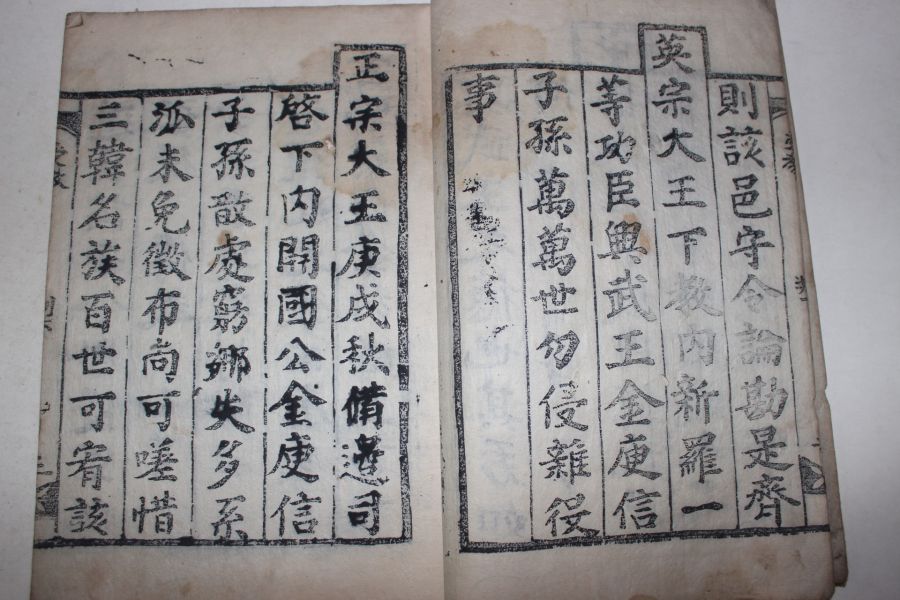 則該邑守令論勘是齊
英宗大王下教內新羅一
等功臣興武王金庾信
子孫萬萬世勿侵雜役
事
正宗大王庚戌秋備邊司
啓下內開國公金庾信
子孫散處窮鄕失多系
派未免徵布尚可嗟惜
三韓名族百世可宥該